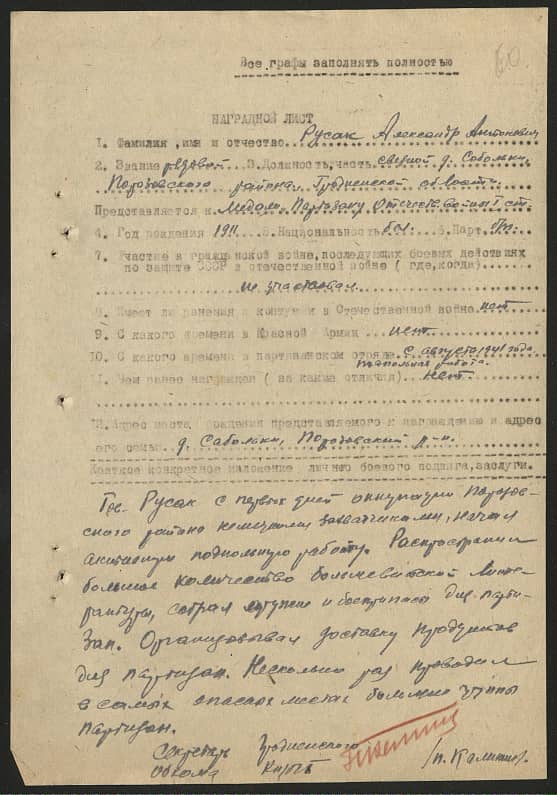 Все графы заполнять полностью
60.
НАГРАДНОЙ ЛИСТ
1. Фамилия, имя и отчество Русак Александр Антонович
2. Звание рядовой 3. Должность, часть связной д. Собольки
Порозовского района Гродненской области
Представляется к Медали Партизану Отечеств. войны I ст.
4. Год рождения 1911 5. Национальность бел. 6. Парт.
7. Участие в гражданской войне, последующих боевых действиях
по защите СССР в отечественной войне ( где, когда)
не участвовал
8. Имеет ли ранения и контузии в Отечественной войне нет
9. С какого времени в Красной Армии нет
10. С какого времени в партизанском отряде с августа 1941 года.
подпольная работа.
1. Чем ранее награжден ( за какие отличия) нет.
2. Адрес места рождения представляемого к награждению и адрес
его семьи д. Сабольки, Порозовский р-н.
Краткое конкретное изложение личного боевого подвига, заслуги.
Тов. Русак с первых дней оккупации Порозов-
ского района немецкими захватчиками, начал
активную подпольную работу. Распространил
большое количество большевистской лите-
ратуры, собрал оружие и боеприпасы для парти-
зан. Организовывал доставку продуктов
для партизан. Несколько раз проводил
в самых опасных местах большие группы
партизан.
Секретарь Гродненского
Обкома КП(б)Б /п. Калинин.